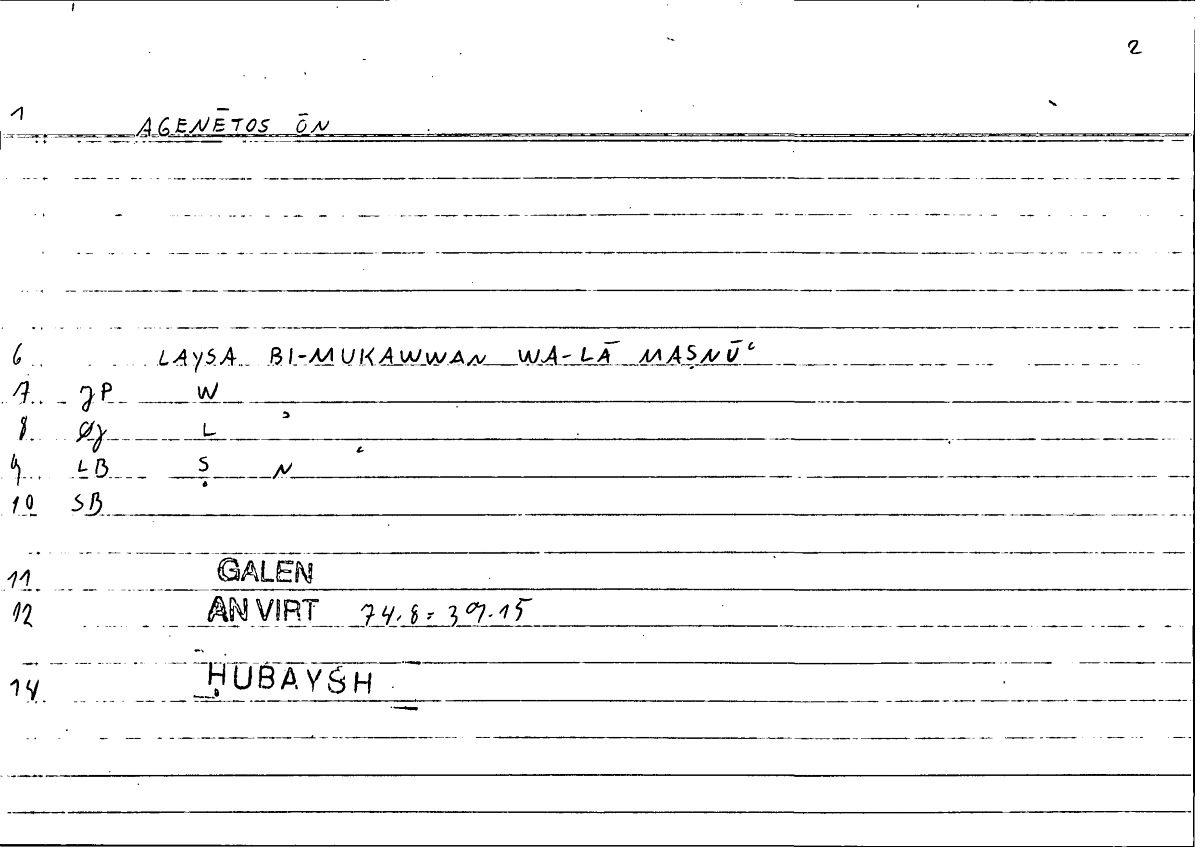 2
1 AGENĒTOS ŌN
6 LAYSA BI-MUKAWWAN WA-LĀ MAṢNŪʿ
7 JP W
8 ØJ L ʾ
9 LB Ṣ N ʿ
10 SB
11 GALEN
12 AN VIRT 74.8 = 39.15
14 ḤUBAYSH